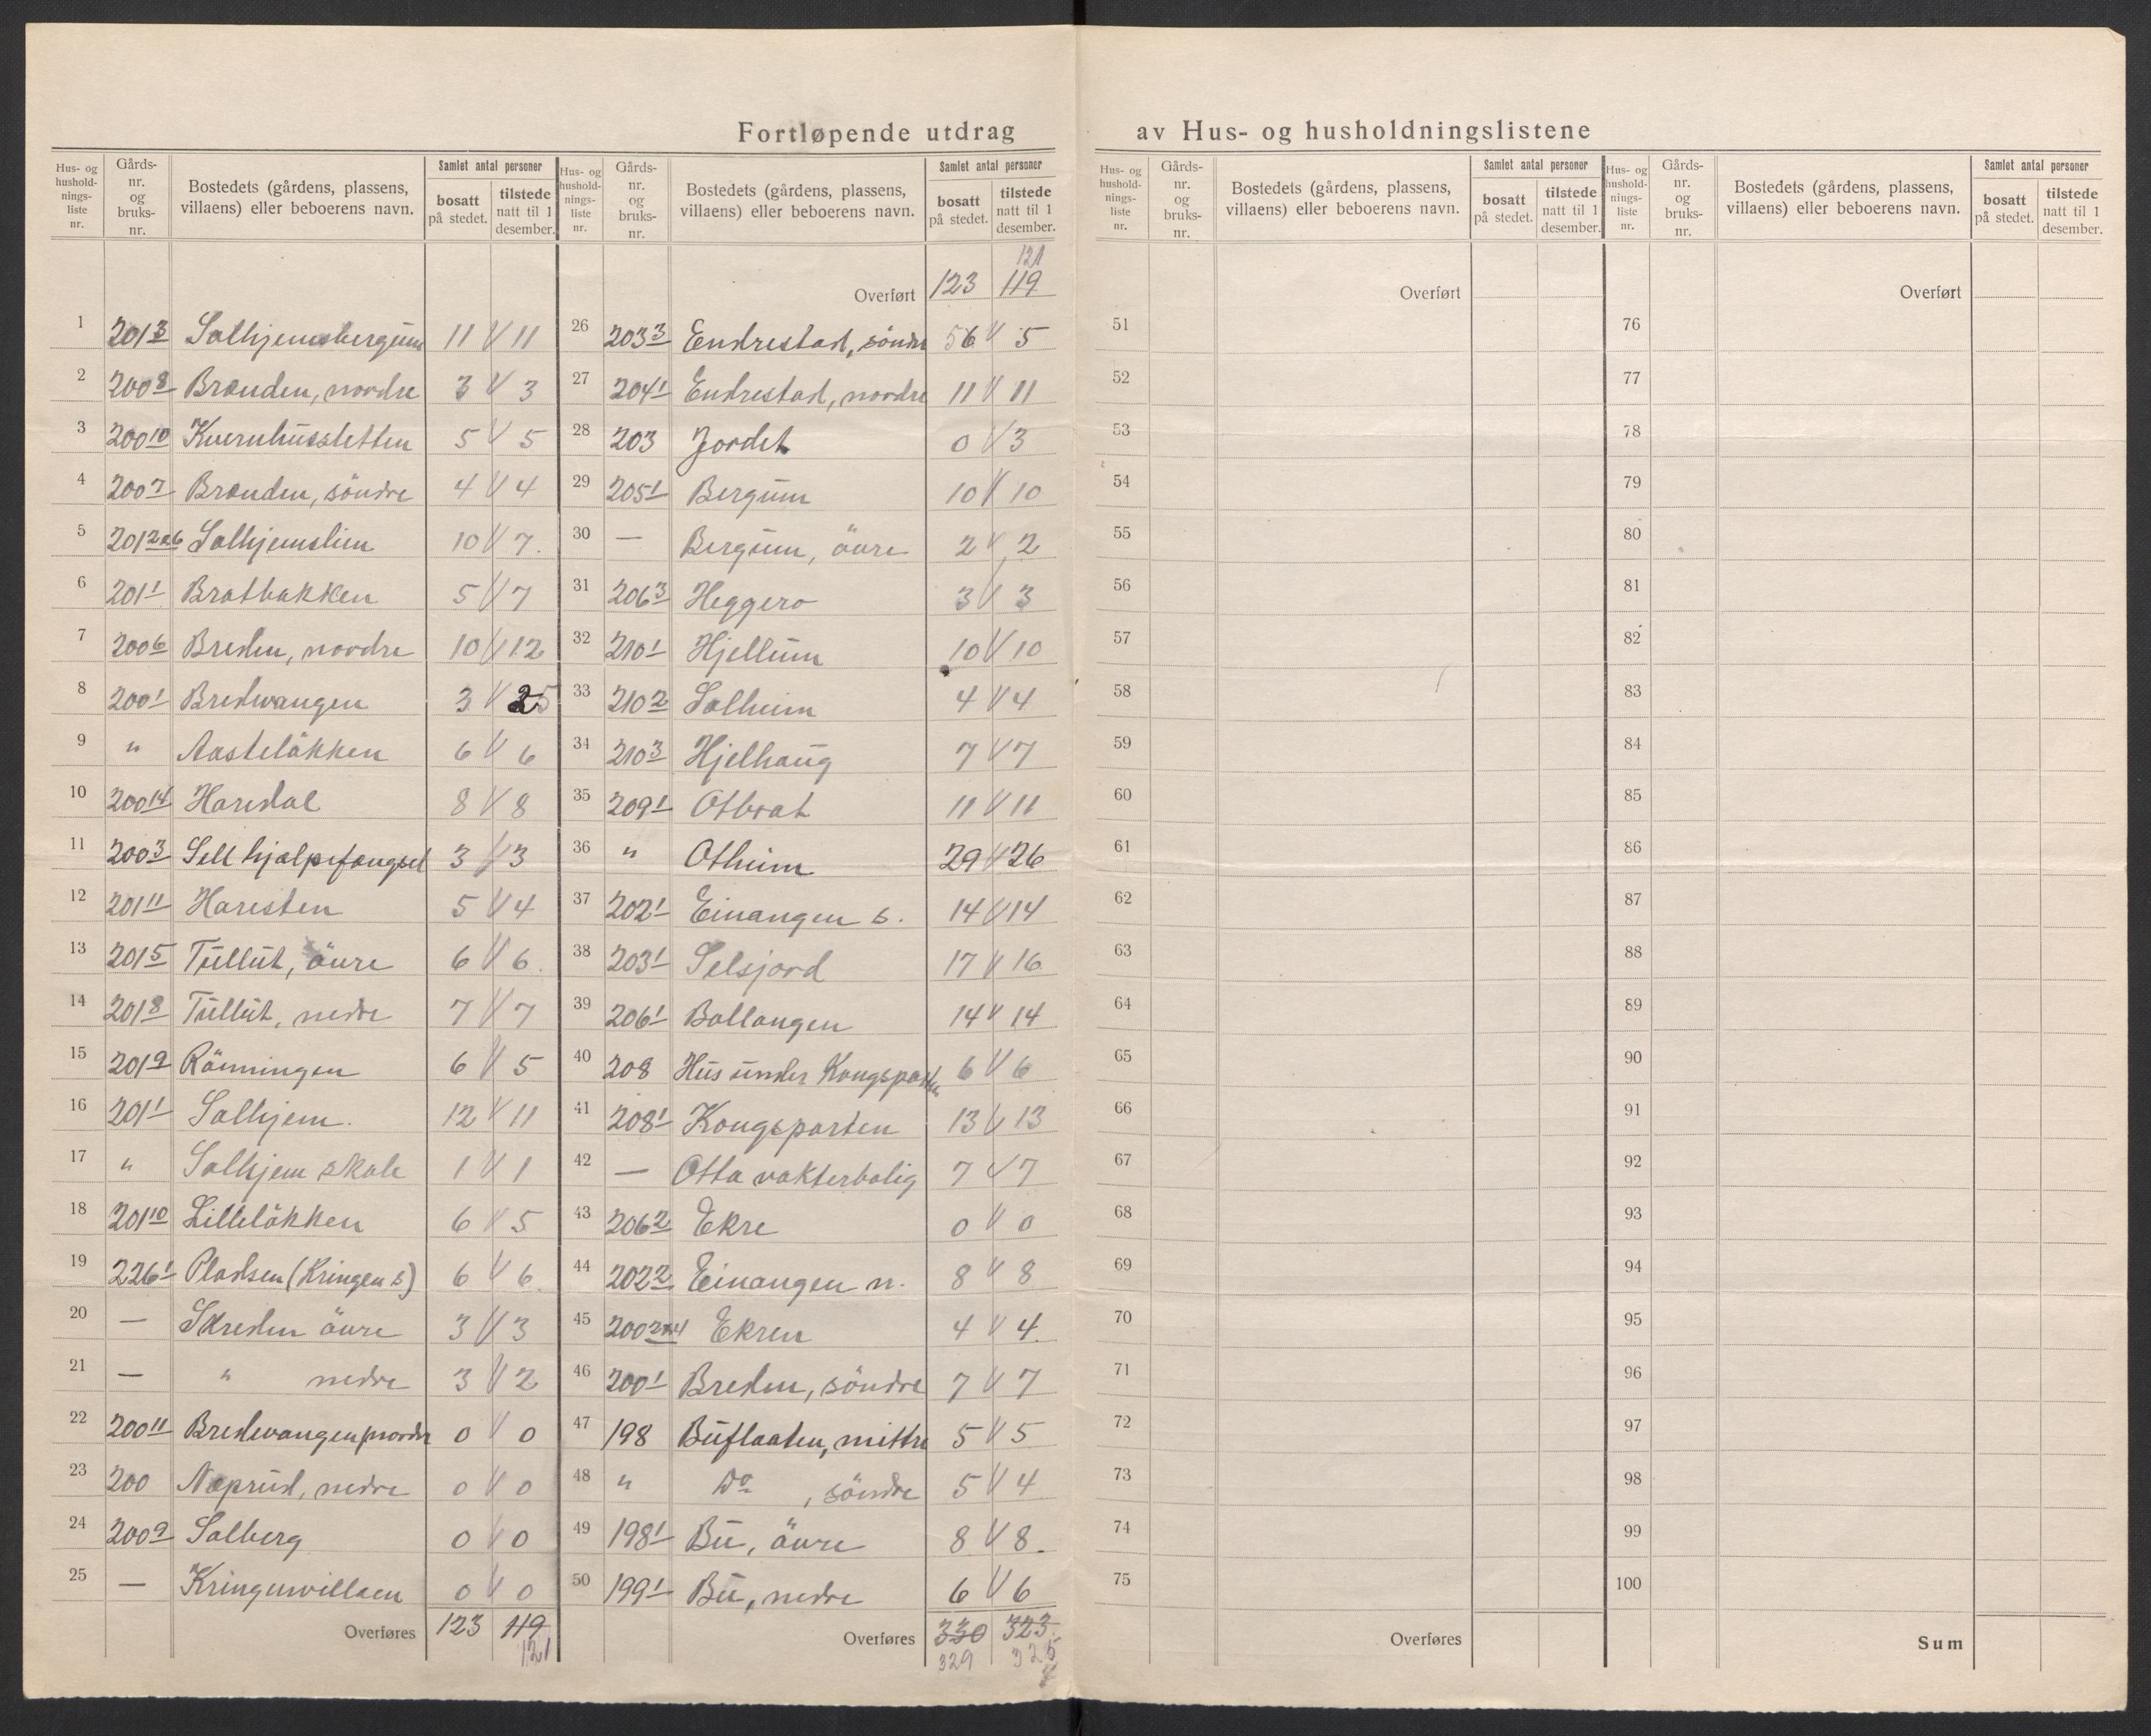 Fortløpende utdrag av Hus- og husholdningslistene
Hus- og hushold-nings-liste nr. | Gårds-nr. og bruks-nr. | Bostedets (gårdens, plassens, villaens) eller beboerens navn. | Samlet antal personer | bosatt på stedet. | tilstede natt til 1 desember.
1 201 3 Solhjemsbergum 11 V 11
2 200 8 Brænden, nordre 3 V 3
3 200 10 Kvernhussletten 5 V 5
4 200 7 Brænden, söndre 4 V 4
5 201 2 & 6 Solhjemslien 10 V 7.
6 201 1 Bratbakken 5 V 7
7 200 6 Breden, nordre 10 V 12
8 200 1 Bredevangen 3 V 25
9 " Aasteløkken 6 V 6
10 200 14 Haredal 8 V 8
11 200 3 Sell hjælpefængsel 3 V 3
12 201 11 Haresten 5 V 4
13 201 5 Tullut, övre 6 V 6.
14 201 8 Tullut, nedre 7 V 7
15 201 9 Rönningen 6 V 5
16 201 1 Solhjem. 12 V 11
17 " Solhjem skole 1 V 1
18 201 10 Lilleløkken 6 V 5
19 226 1 Pladsen (Kringen s) 6 V 6.
20 — Skreden övre 3 V 3
21 — " nedre 3 V 2
22 200 11 Bredevangen, nordre 0 V 0
23 200 Neprud, nedre 0 V 0
24 200 9 Solberg 0 V 0
25 — Kringenvillaen 0 V 0
Overføres 123 119
121
Hus- og hushold-nings-liste nr. | Gårds-nr. og bruks-nr. | Bostedets (gårdens, plassens, villaens) eller beboerens navn. | Samlet antal personer | bosatt på stedet. | tilstede natt til 1 desember.
121
Overført 123 119
26 203 3 Endrestad, söndre 56 V 5
27 204 1 Endrestad, nordre 11 V 11
28 203 Jordet 0 V 3
29 205 1 Bergum 10 V 10
30 — Bergum, övre 2 V 2
31 206 3 Heggero 3 V 3
32 210 1 Hjellum 10 V 10
33 210 2 Solheim 4 V 4
34 210 3 Hjelhaug 7 V 7
35 209 1 Otbrat 11 V 11
36 " Otheim 29 V 26
37 202 1 Einangen s. 14 V 14
38 203 1 Selsjord 17 V 16
39 206 1 Ballangen 14 V 14
40 208 Hus under Kongsparten 6 V 6
41 208 1 Kongsparten 13 V 13
42 — Otta vakterbolig 7 V 7
43 206 2 Ekre 0 V 0
44 202 2 Einangen n. 8 V 8
45 200 2 & 4 Ekren 4 V 4.
46 200 1 Breden, söndre 7 V 7
47 198 Buflaaten, mittre 5 V 5
48 " Do, söndre 5 V 4
49 198 1 Bu, övre 8 V 8.
50 199 1 Bu, nedre 6 V 6
Overføres 330 323.
329 325
Hus- og hushold-nings-liste nr. | Gårds-nr. og bruks-nr. | Bostedets (gårdens, plassens, villaens) eller beboerens navn. | Samlet antal personer | bosatt på stedet. | tilstede natt til 1 desember.
Overført
51
52
53
54
55
56
57
58
59
60
61
62
63
64
65
66
67
68
69
70
71
72
73
74
75
Overføres
Hus- og hushold-nings-liste nr. | Gårds-nr. og bruks-nr. | Bostedets (gårdens, plassens, villaens) eller beboerens navn. | Samlet antal personer | bosatt på stedet. | tilstede natt til 1 desember.
Overført
76
77
78
79
80
81
82
83
84
85
86
87
88
89
90
91
92
93
94
95
96
97
98
99
100
Sum